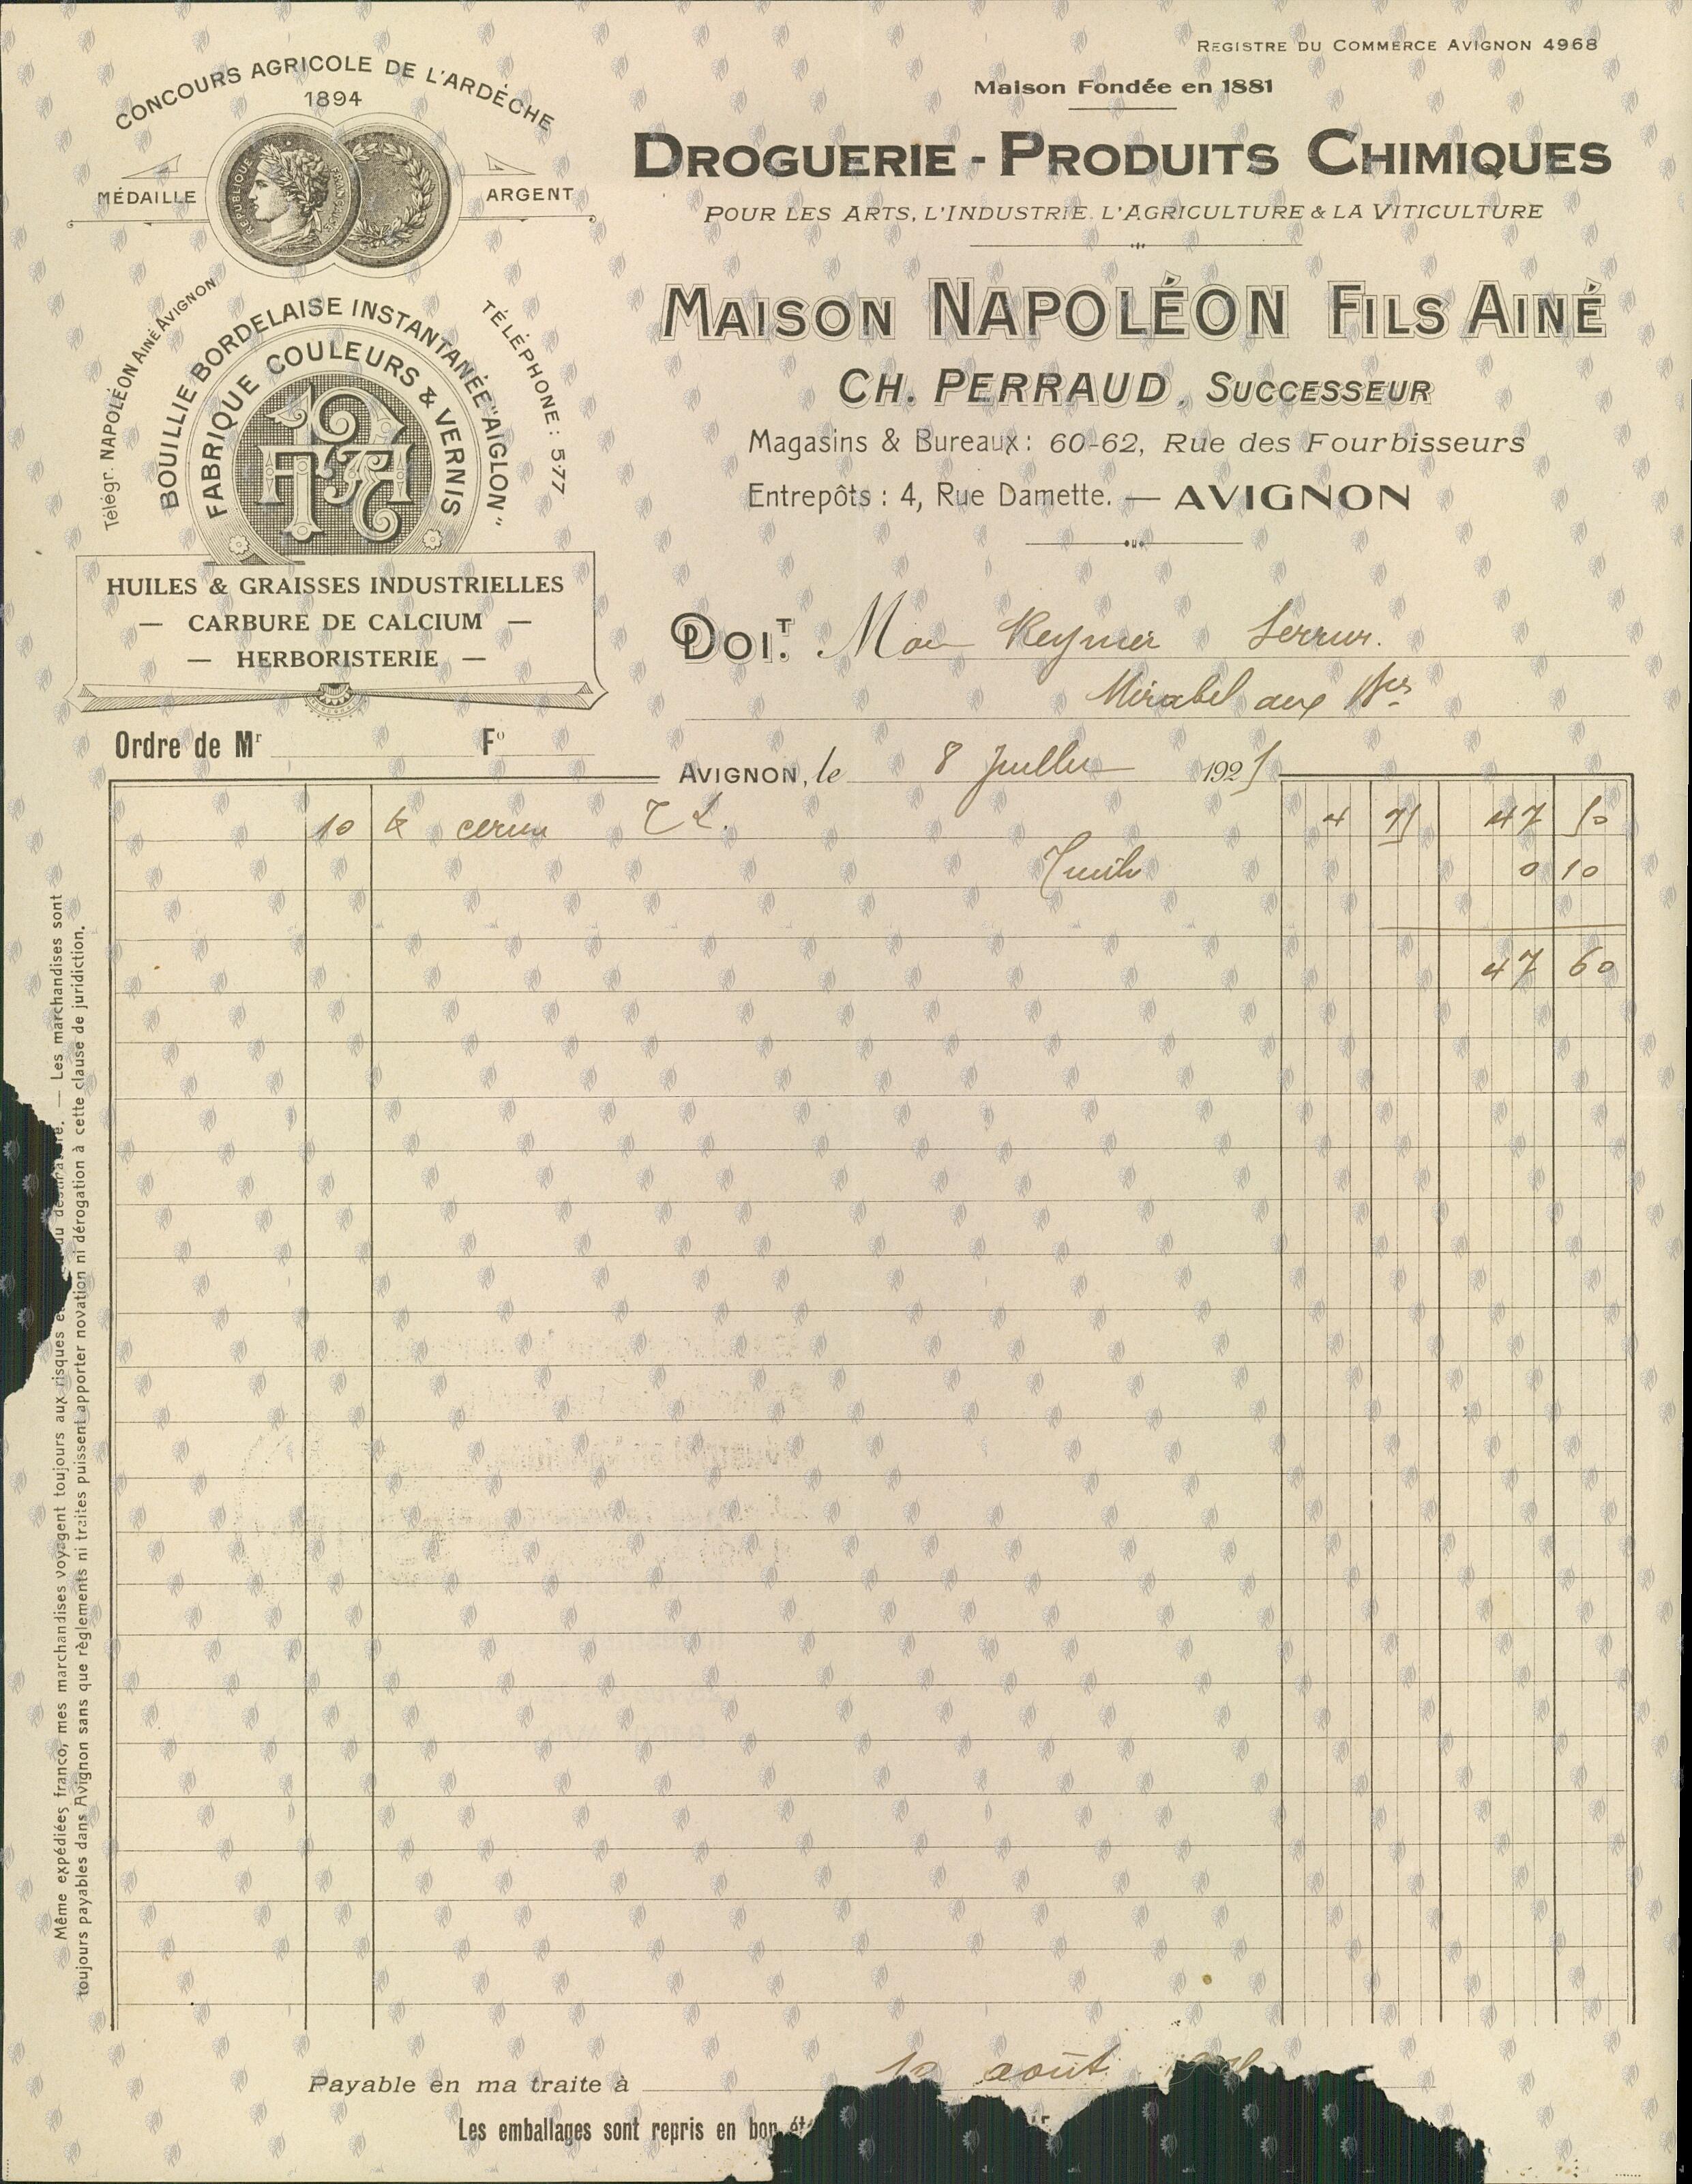 REGISTRE DU COMMERCE AVIGNON 4968
Maison Fondée en 1881
DROGUERIE - PRODUITS CHIMIQUES
POUR LES ARTS, L'INDUSTRIE, L'AGRICULTURE & LA VITICULTURE
MAISON NAPOLÉON FILS AINÉ
CH. PERRAUD, SUCCESSEUR
Magasins & Bureaux : 60-62, Rue des Fourbisseurs
Entrepôts : 4, Rue Damette. — AVIGNON
CONCOURS AGRICOLE DE L'ARDÈCHE
1894
MÉDAILLE ARGENT
RÉPUBLIQUE FRANÇAISE
Télégr. NAPOLÉON AINÉ AVIGNON
TÉLÉPHONE : 5-77
BOUILLIE BORDELAISE INSTANTANÉE "AIGLON"
FABRIQUE COULEURS & VERNIS
HUILES & GRAISSES INDUSTRIELLES
— CARBURE DE CALCIUM —
— HERBORISTERIE —
DOIT. Mon Reynier Serrur.
Mirabel aux Bies
Ordre de Mr Fo
AVIGNON, le 8 Juillet 1925
10 k 4 75 47 50
0 10
47 60
Même expédiées franco, mes marchandises voyagent toujours aux risques du destinataire. — Les marchandises sont
toujours payables dans Avignon sans que règlements ni traites puissent apporter novation ni dérogation à cette clause de juridiction.
Payable en ma traite à 10 août
Les emballages sont repris en bon